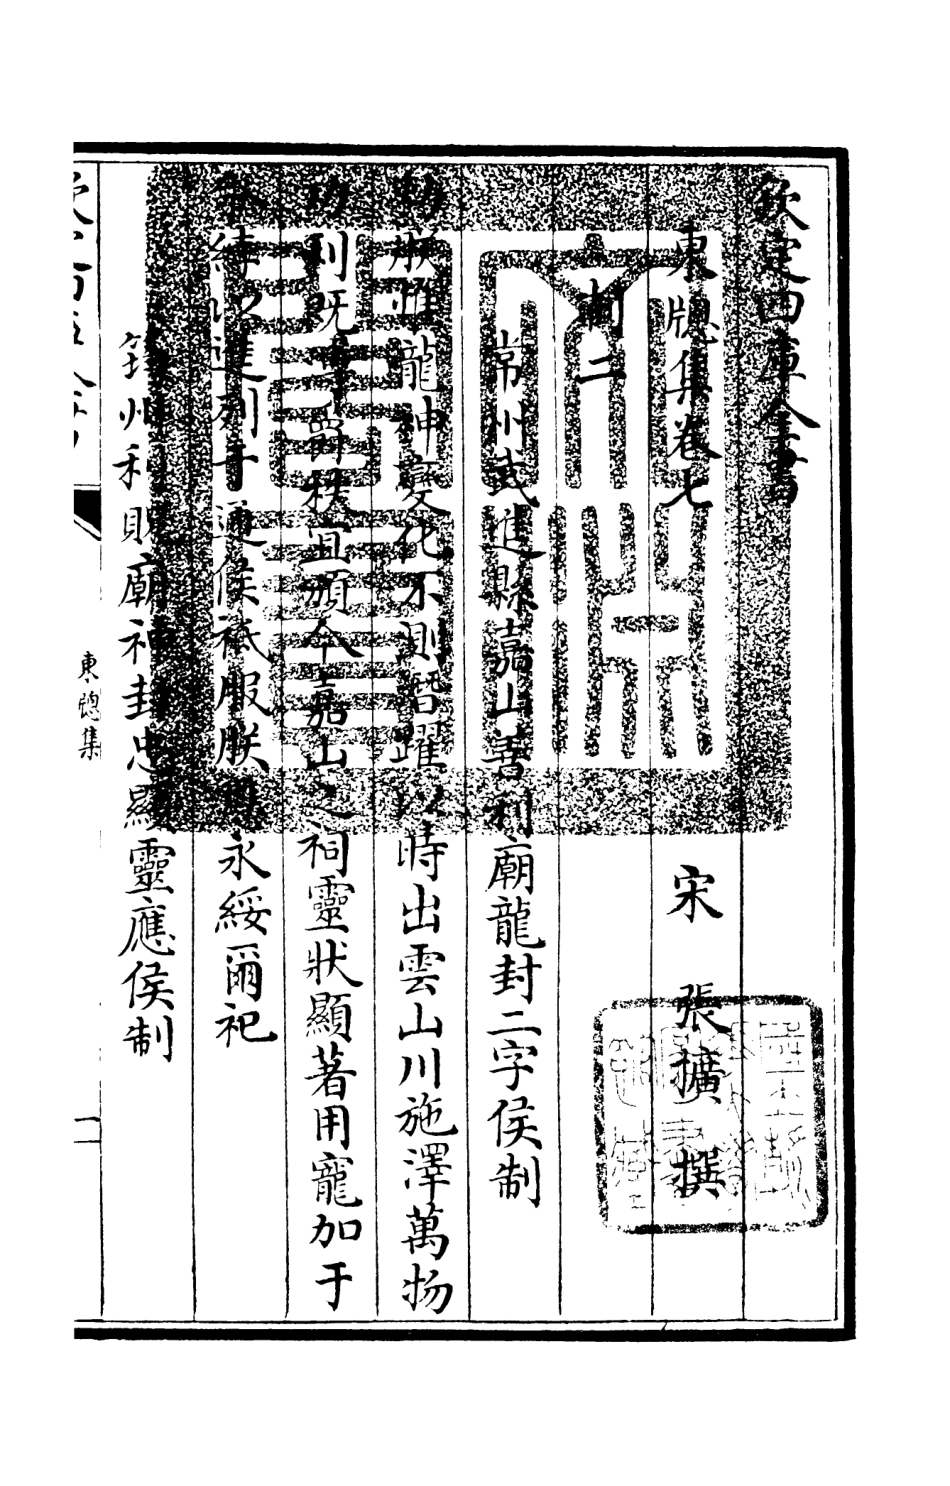 欽定四庫全書
東牕集卷七
宋 張擴 撰
制二
常州武進縣嘉山善利廟龍封二字侯制
勅朕惟龍神變化不測潛躍以時出雲山川施澤萬物
功利既博爵秩宜頒今嘉山之祠靈狀顯著用寵加于
綍以進列于通侯祗服朕永綏爾祀
筠州利貺廟神封忠顯靈應侯制
東牕集
一